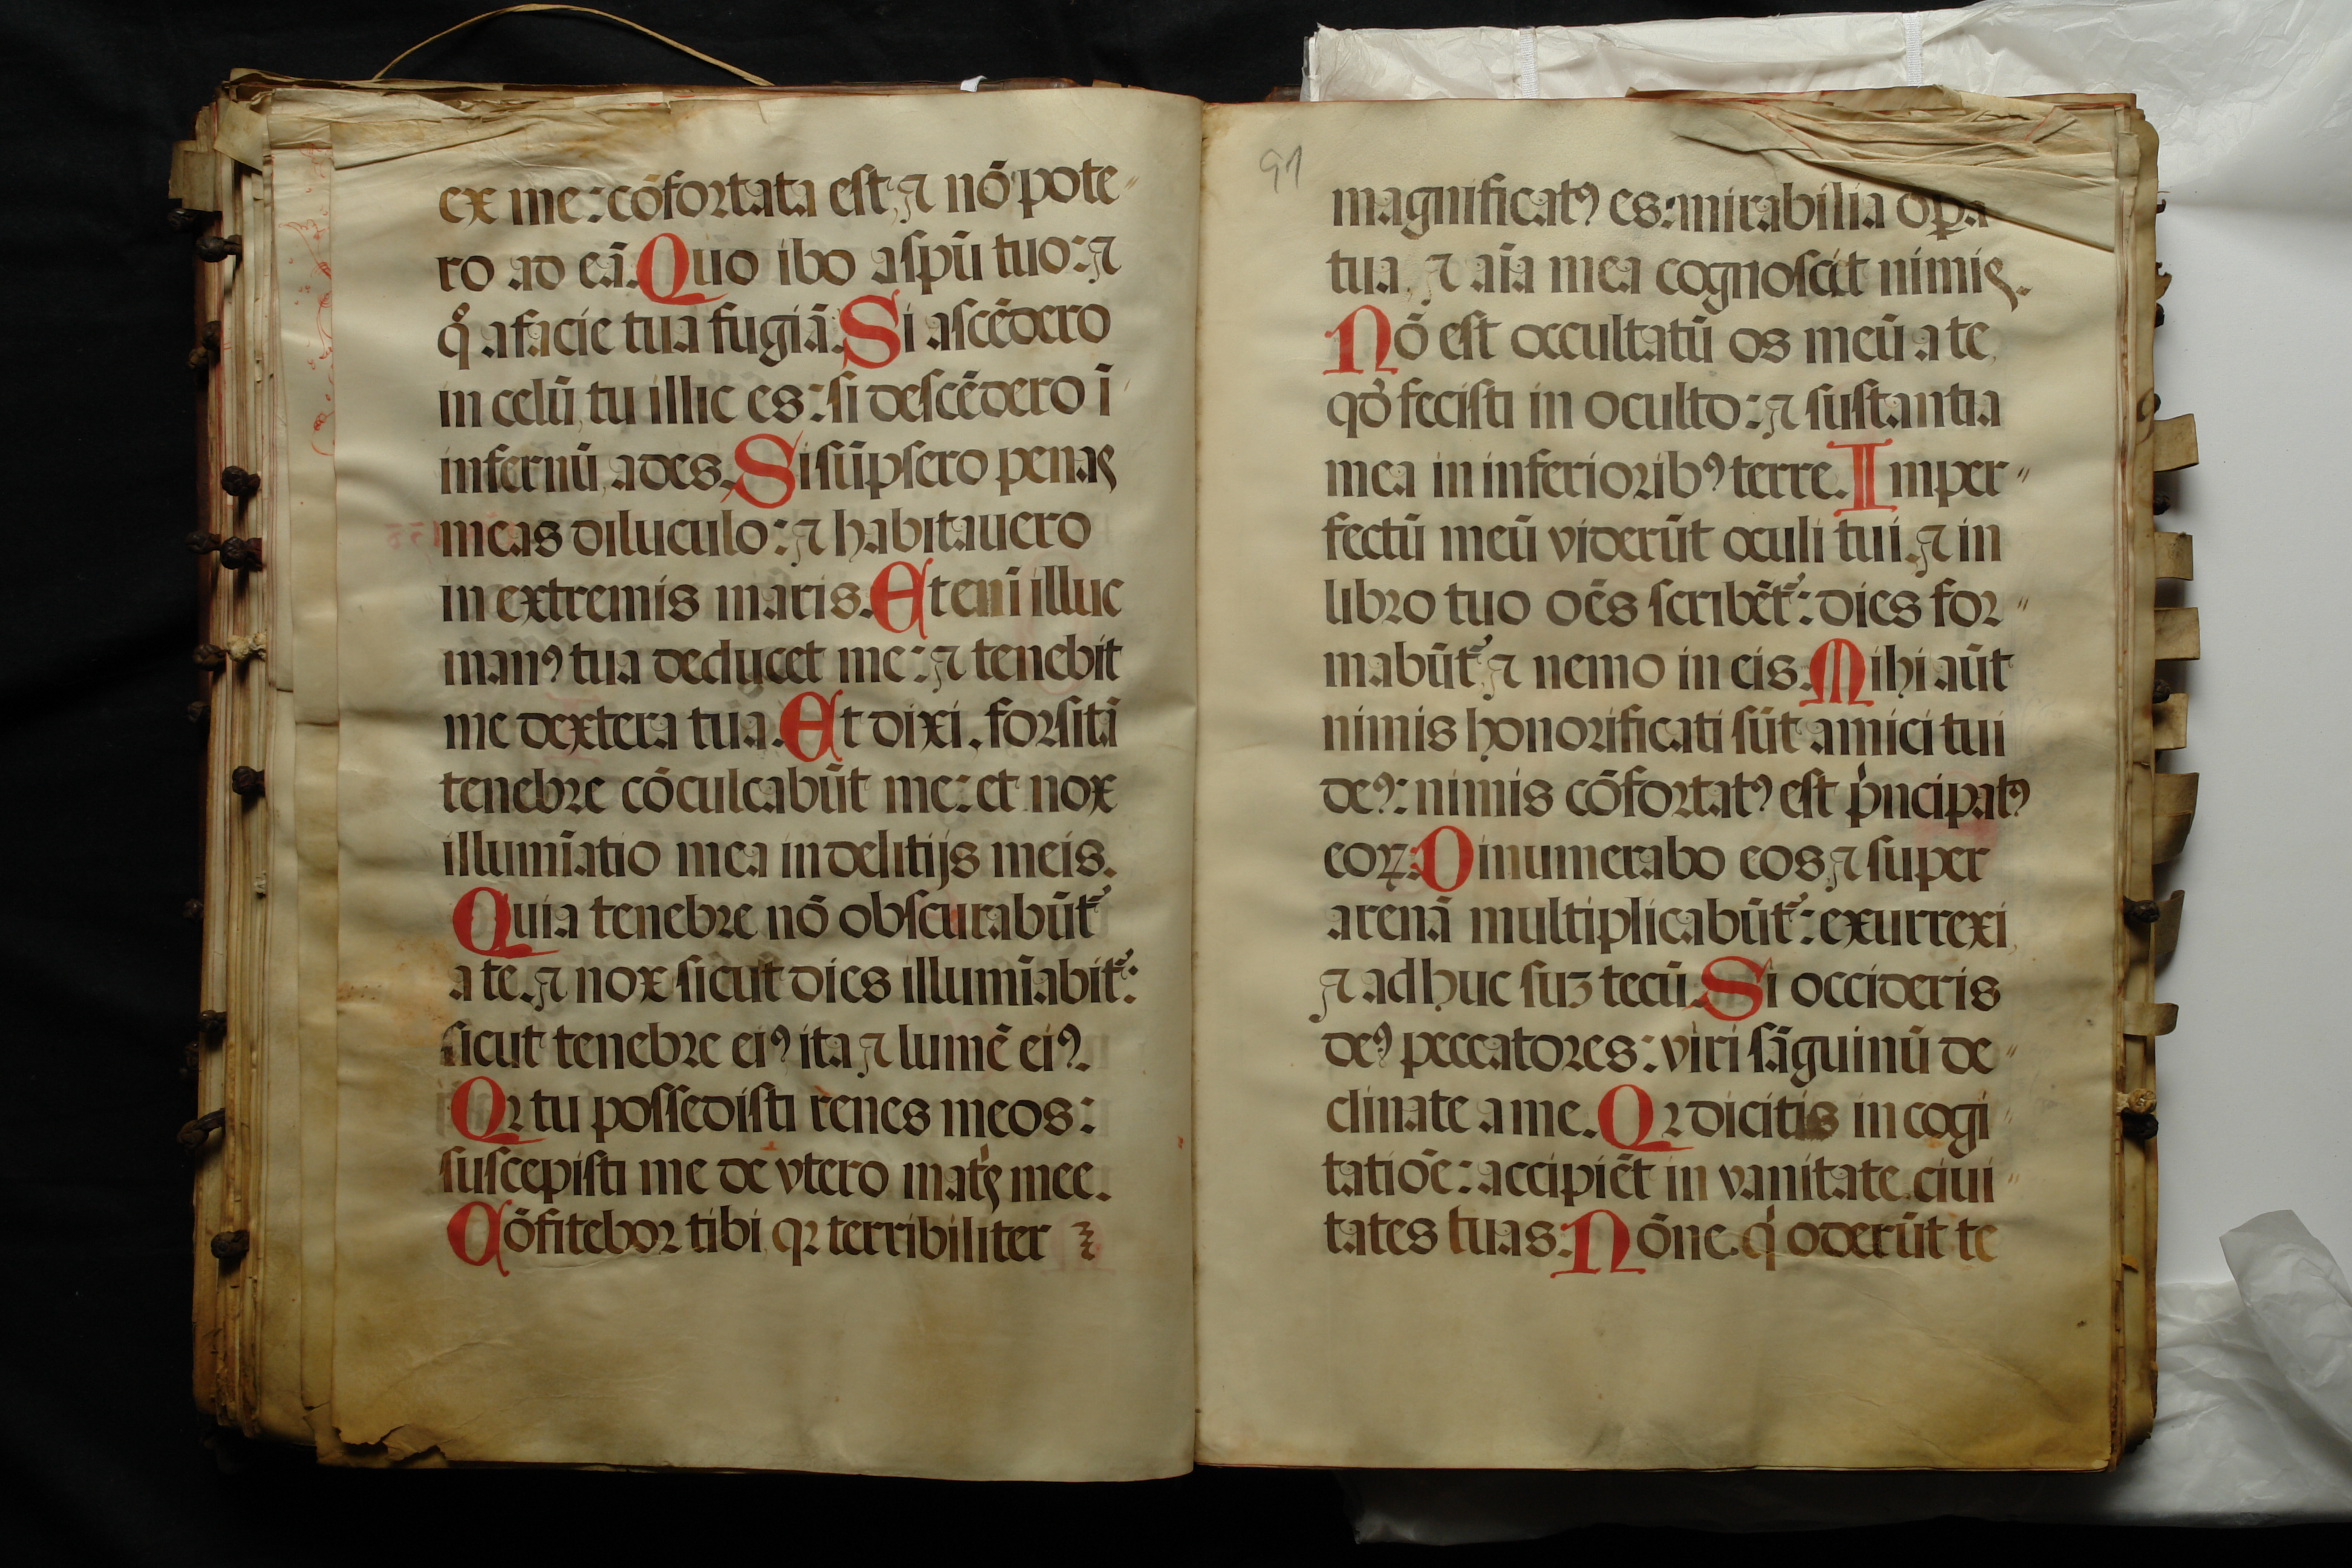 ex me: cōfortata est, ⁊ nō pote-
ro ad eā. Quo ibo a spū tuo: ⁊
q̊ a facie tua fugiā. Si ascēdero
in celū, tu illic es: si descēdero ī
infernū, ades. Si sūpsero penas
meas diluculo: ⁊ habitauero
in extremis maris. Et enī illuc
manꝰ tua deducet me: ⁊ tenebit
me dextera tua. Et dixi. forsitā
tenebre cōculcabūt me: et nox
illumīatio mea in delitijs meis.
Quia tenebre nō obscurabūt᷑
a te. ⁊ nox sicut dies illumīabit᷑:
sicut tenebre eiꝰ ita ⁊ lumē eiꝰ.
Qꝛ tu possedisti renes meos:
suscepisti me de vtero mat͛s mee.
Cōfitebor tibi qꝛ terribiliter
91
magnificatꝰ es: mirabilia oꝑa
tua, ⁊ aīa mea cognoscit nimis.
Nō est occultatū os meū a te,
qđ fecisti in oculto: ⁊ sustantia
mea in inferioribꝰ terre. Imper-
fectū meū viderūt oculi tui. ⁊ in
libro tuo oēs scribēt᷑: dies for-
mabūt᷑ ⁊ nemo in eis. Mihi aūt
nimis honorificati sūt amici tui
deꝰ: nimis cōfortatꝰ est pͥncipatꝰ
eoꝝ: Dinumerabo eos, ⁊ super
arenā multiplicabūt᷑: exurrexi,
⁊ ad huc suꝫ tecū. Si occideris
deꝰ peccatores: viri sāguinū de-
clinate a me. Qꝛ dicitis in cogi-
tatiōe: accipiēt in vanitate ciui-
tates tuas: Nōne qͥ oderūt te